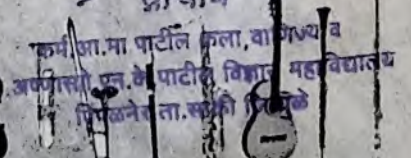 कर्म.आ.मा पाटील कला, वाणिज्य व
अण्णासो एन.के पाटील विज्ञान महाविद्यालय
पिंपळनेर ता.साक्री जि.धुळे